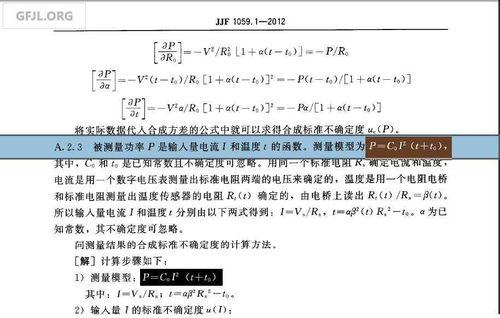 GFJL.ORG
JJF 1059.1—2012
[∂P/∂R₀]=-V²/R₀² [1+α(t-t₀)]=-P/R₀
[∂P/∂α]=-V²(t-t₀)/R₀ [1+α(t-t₀)]²=-P(t-t₀)/[1+α(t-t₀)]
[∂P/∂t]=-V²α/R₀ [1+α(t-t₀)]²=-Pα/[1+α(t-t₀)]
将实际数据代入合成方差的公式中就可以求得合成标准不确定度 u꜀(P)。
A.2.3 被测量功率 P 是输入量电流 I 和温度 t 的函数。测量模型为 P=C₀I²(t+t₀),
其中, C₀ 和 t₀ 是已知常数且不确定度可忽略。用同一个标准电阻 Rₛ 确定电流和温度,
电流是用一个数字电压表测量出标准电阻两端的电压来确定的, 温度是用一个电阻电桥
和标准电阻测量出温度传感器的电阻 Rₜ(t) 确定的, 由电桥上读出 Rₜ(t)/Rₛ=β(t)。
所以输入量电流 I 和温度 t 分别由以下两式得到: I=Vₛ/Rₛ, t=αβ²(t) Rₛ²-t₀。α 为已
知常数, 其不确定度可忽略。
问测量结果的合成标准不确定度的计算方法。
[解] 计算步骤如下:
1) 测量模型: P=C₀I² (t+t₀)
其中: I=Vₛ/Rₛ; t=αβ²Rₛ²-t₀。
2) 输入量 I 的标准不确定度 u(I):